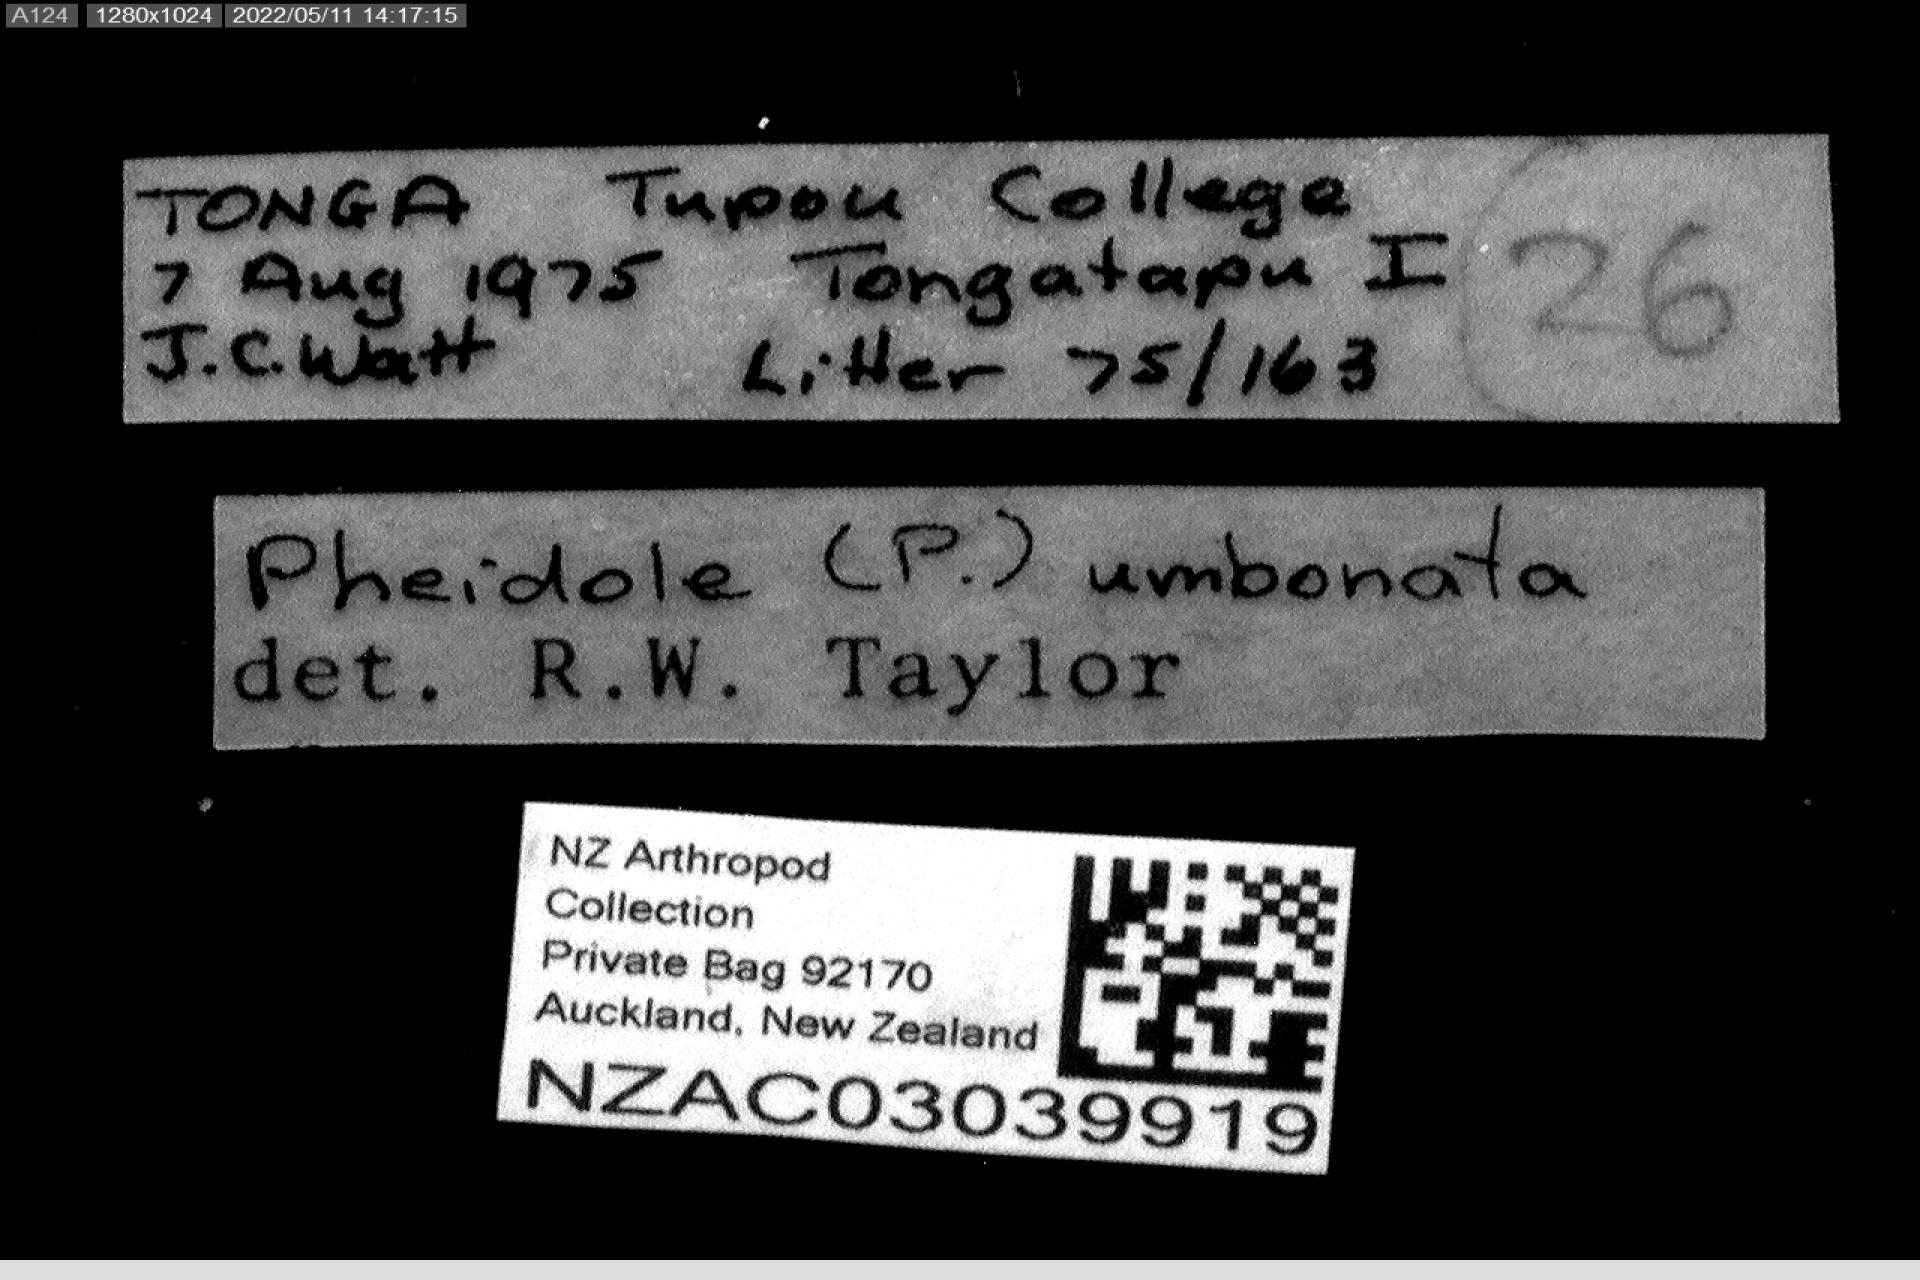 A124 1280x1024 2022/05/11 14:17:15
TONGA Tupou College
7 Aug 1975 Tongatapu I
J.C. Watt Litter 75/163
26
Pheidole (P.) umbonata
det. R.W. Taylor
NZ Arthropod
Collection
Private Bag 92170
Auckland, New Zealand
NZAC03039919